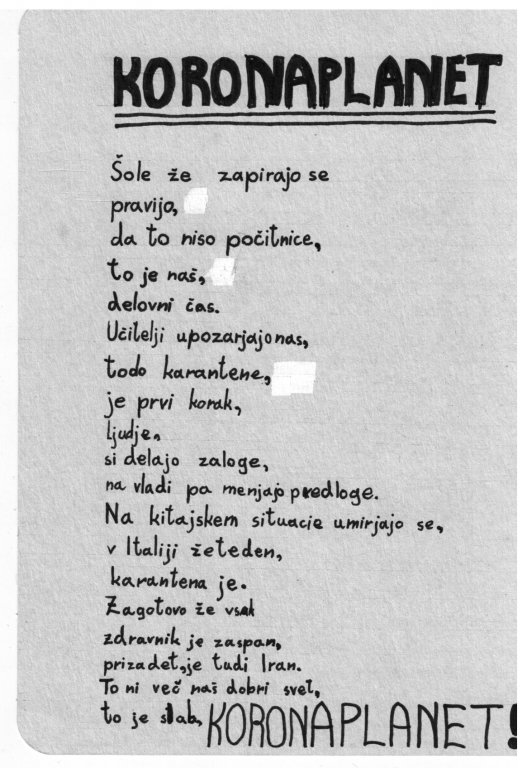 KORONAPLANET
Šole že zapirajo se
pravijo,
da to niso počitnice,
to je naš,
delovni čas.
Učitelji upozarjajo nas,
todo karantene,
je prvi korak,
ljudje,
si delajo zaloge,
na vladi pa menjajo predloge.
Na kitajskem situacie umirjajo se,
v Italiji že teden,
karantena je.
Zagotovo že vsak
zdravnik je zaspan,
prizadet, je tudi Iran.
To ni več naš dobri svet,
to je slab, KORONAPLANET!